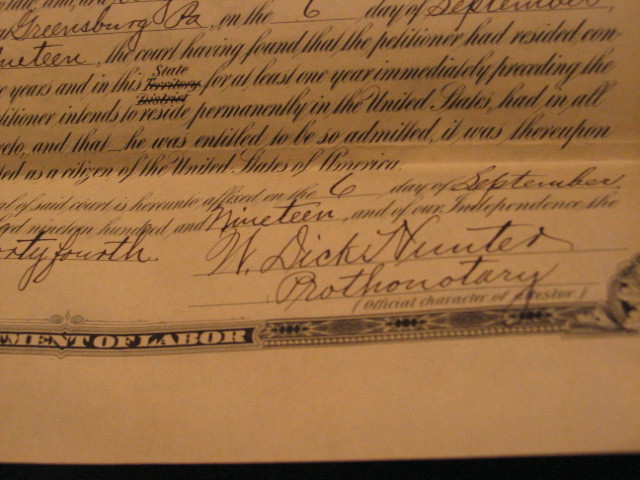 Greensburg Pa, on the 6 day of September,
nineteen, the court having found that the petitioner had resided con
years and in this State Territory District for at least one year immediately preceding the
titioner intends to reside permanently in the United States, had in all
eto, and that he was entitled to be so admitted, it was thereupon
ed as a citizen of the United States of America.
al of said court is hereunto affixed on the 6 day of September,
nineteen hundred and Nineteen, and of our Independence the
orty fourth.
W. Dick Hunter
Prothonotary
(Official character of attestor.)
TMENT OF LABOR